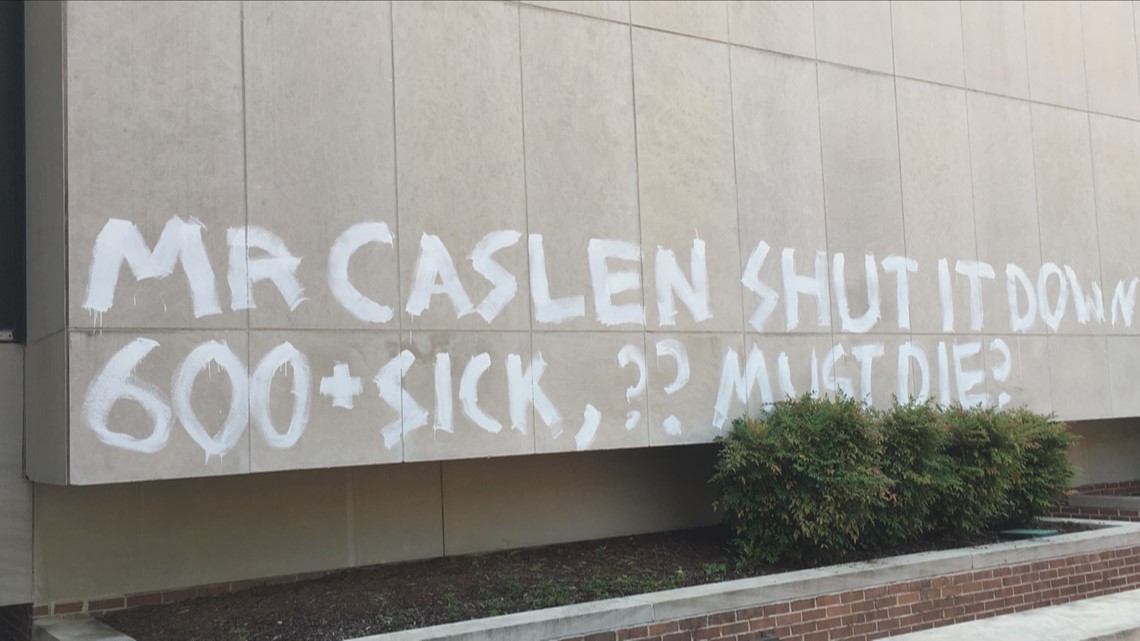 MR CASLEN SHUT IT DOWN
600+ SICK, ?? MUST DIE?